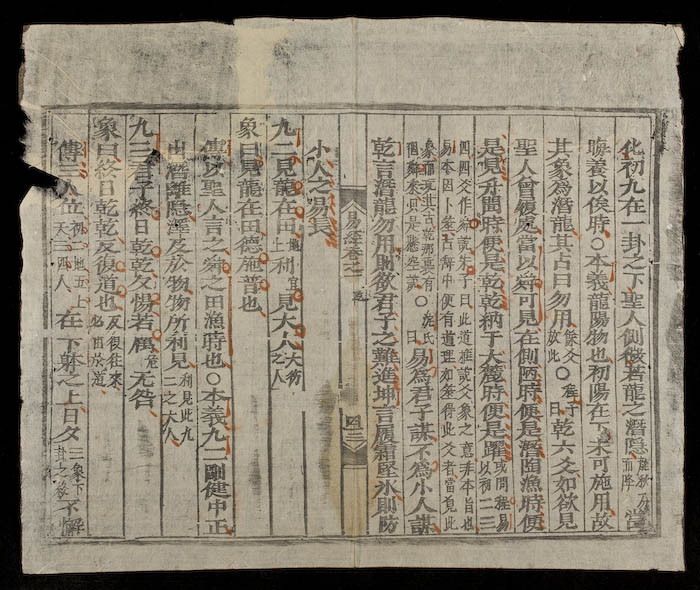 化初九在一卦之下聖人側微若龍之潛隱龍秋分而降當
晦養以俟時○本義龍陽物也初陽在下未可施用故
其象為潛龍其占曰勿用餘爻放此○程子曰乾六爻如欲見
聖人曾履處當以舜可見在側陋時便是潛陶漁時便
是見升聞時便是乾乾納于大麓時便是躍或問程易以初二三
四四爻作舜說朱子曰此道推說爻象之意非本旨也
易本因卜筮占辭中便有道理如筮得此爻者當見此
象而玩其占乾那裏有
個舜來但是懸空說○氏曰易為君子謀不為小人謀
乾言潛龍勿用則欲君子之難進坤言履霜堅氷則防
小人之易長
易經卷之一
九二見龍在田地上利宜見大人大之人
象曰見龍在田德施普也
傳以聖人言之舜之田漁時也○本義九二剛健中正
出潛離隱澤及於物物所利見利見此九二之大人
九三君子終日乾乾夕惕若厲危无咎
象曰終日乾乾反復道也反復往來必由於道
傳三人位初二地五上天三四人在下躰之上日夕三象下卦之終不懈